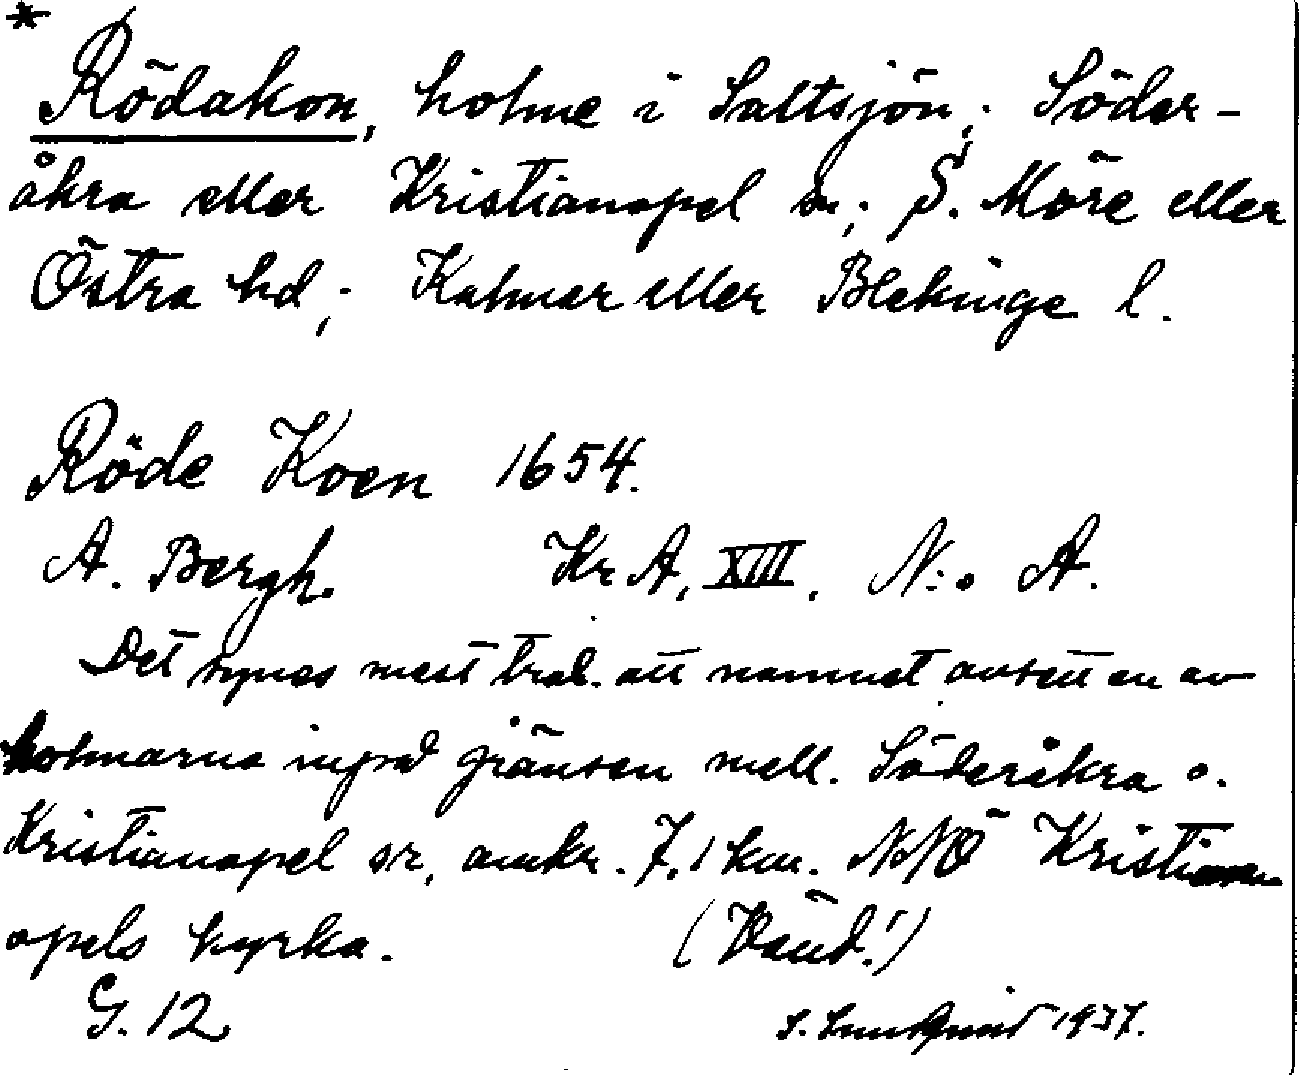 *
Rödakon, holme i Saltsjön; Söder-
åkra eller Kristianopel sn; S. Möre eller
Östra hd; Kalmar eller Blekinge l.
Röde Koen 1654.
A. Bergh. Kr A, XIII. N:o A.
Det synes mest trol. att namnet avsett en av
holmarna invid gränsen mell. Söderåkra o.
Kristianopel sr, omkr. 7,1 km. NNÖ Kristian
opels kyrka. (Vänd!)
G. 12 1937.